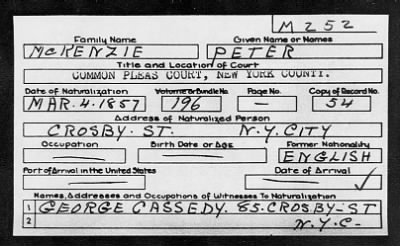 M252
Family Name Given Name or Names
McKENZIE PETER
Title and Location of Court
COMMON PLEAS COURT, NEW YORK COUNTY.
Date of Naturalization Volume or Bundle No. Page No. Copy of Record No.
MAR. 4. 1857 196 — 54
Address of Naturalized Person
CROSBY. ST. N.Y. CITY
Occupation Birth Date or Age Former Nationality
— — ENGLISH
Port of Arrival in the United States Date of Arrival
— — ✓
Names, Addresses and Occupations of Witnesses To Naturalization
1 GEORGE CASSEDY. 85. CROSBY-ST
2 N.Y.C-